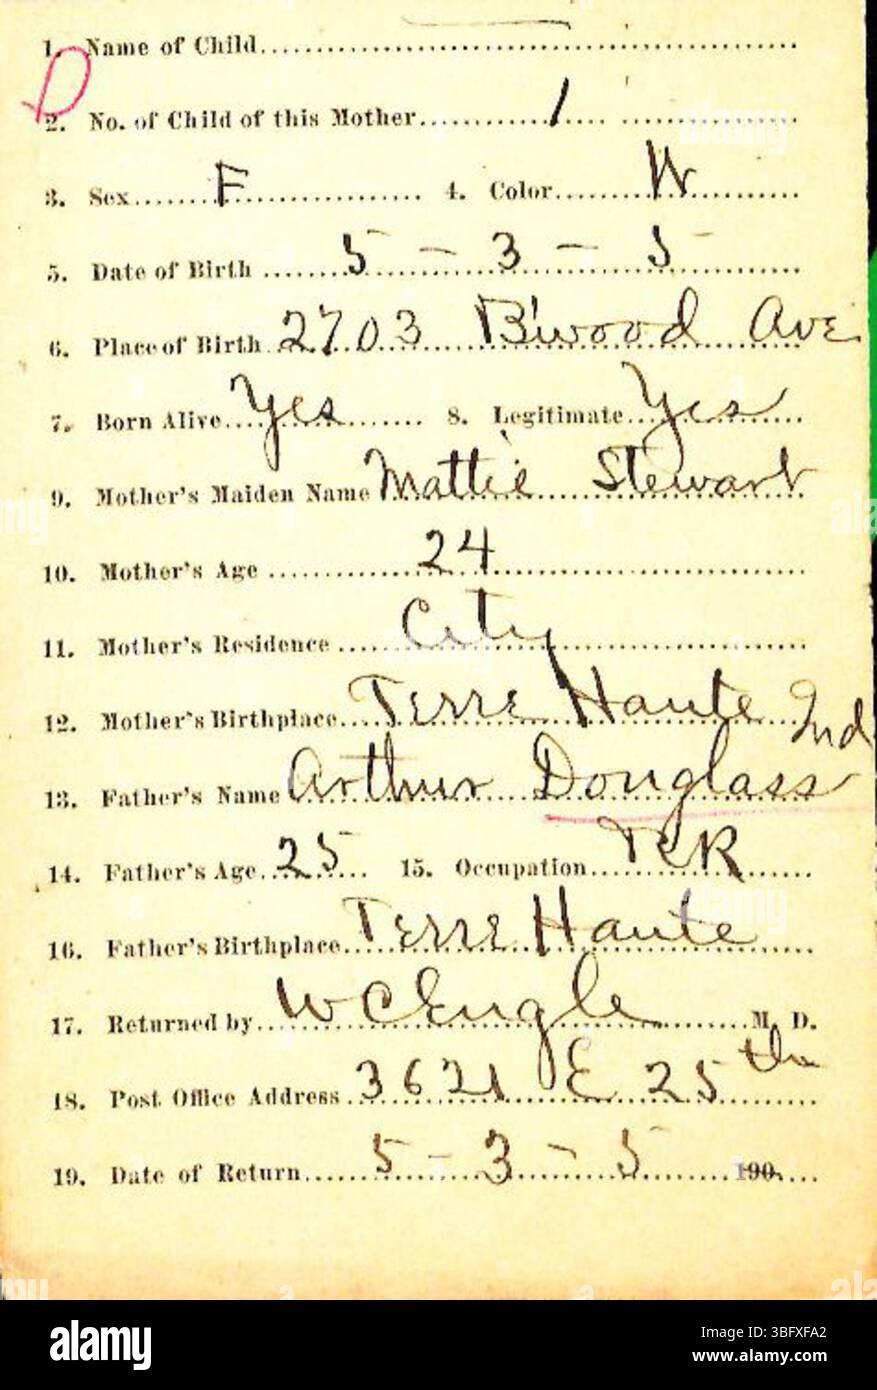 1. Name of Child
D
2. No. of Child of this Mother 1
3. Sex F 4. Color W
5. Date of Birth 5 - 3 - 5
6. Place of Birth 2703 B'wood Ave
7. Born Alive Yes 8. Legitimate Yes
9. Mother's Maiden Name Mattie Stewart
10. Mother's Age 24
11. Mother's Residence City
12. Mother's Birthplace Terre Haute Ind
13. Father's Name Arthur Douglass
14. Father's Age 25 15. Occupation
16. Father's Birthplace Terre Haute
17. Returned by W C Engle M. D.
18. Post Office Address 3621 E 25th
19. Date of Return 5 - 3 - 5 190
alamy
Image ID: 3BFXFA2
www.alamy.com